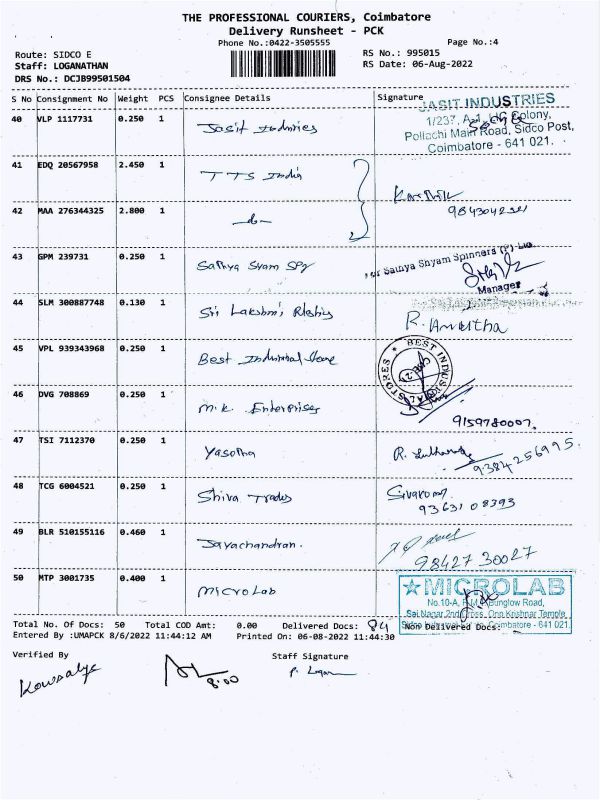 THE PROFESSIONAL COURIERS, Coimbatore
Delivery Runsheet - PCK
Phone No.:0422-3505555
Page No.:4
Route: SIDCO E
RS No.: 995015
Staff: LOGANATHAN
RS Date: 06-Aug-2022
DRS No.: DCJB99501504
S No Consignment No Weight PCS Consignee Details Signature
JASIT INDUSTRIES
40 VLP 1117731 0.250 1 Jasit Industries
Colony,
Pollachi Main Road, Sidco Post,
Coimbatore - 641 021.
41 EDQ 20567958 2.450 1 TTS India
Karthik
42 MAA 276344325 2.800 1 -do-
43 GPM 239731 0.250 1 Sathya Syam Spg
For Sathya Shyam Spinners (P) Ltd.
Manager
44 SLM 300887748 0.130 1 Sri Lakshmi
R. Amritha
45 VPL 939343968 0.250 1 Best Industrial Store
BEST INDUSTRIAL STORES
46 DVG 708869 0.250 1 M.K. Enterprises
9159780007.
47 TSI 7112370 0.250 1 Yasotha
R.
9384256995.
48 TCG 6004521 0.250 1 Shiva Trades
93631 08393
49 BLR 510155116 0.460 1 Jayachandran.
98427 30027
50 MTP 3001735 0.400 1 Micro Lab
MICROLAB
No.10-A, Bunglow Road,
Sai Nagar 2nd Cross, Opp Krishnar Temple,
Coimbatore - 641 021.
Total No. Of Docs: 50 Total COD Amt: 0.00 Delivered Docs: Non Delivered Docs:
Entered By :UMAPCK 8/6/2022 11:44:12 AM Printed On: 06-08-2022 11:44:30
Verified By
Staff Signature
Kowsalya
8:00
P. Logan